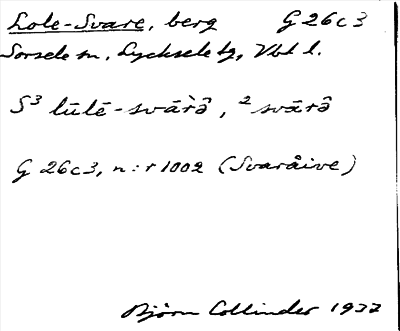 Lole-Svare, berg G 26c3
Sorsele sn, Lycksele tg, Vbl l.
S³ lūlē-svārə̀̂, ²svārə̂
G 26c3, n:r 1002 (Svaråive)
Björn Collinder 1932